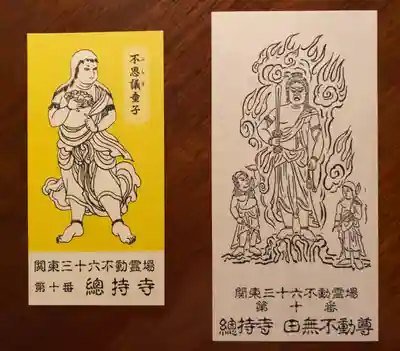 不思議童子
関東三十六不動霊場
第十番 總持寺
関東三十六不動霊場
第十番
總持寺 田無不動尊